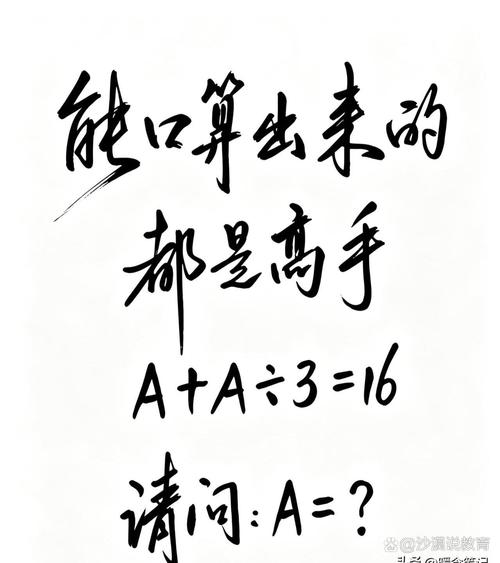 能口算出来的
都是高手
A+A÷3=16
请问:A=?
@沙漏说教育